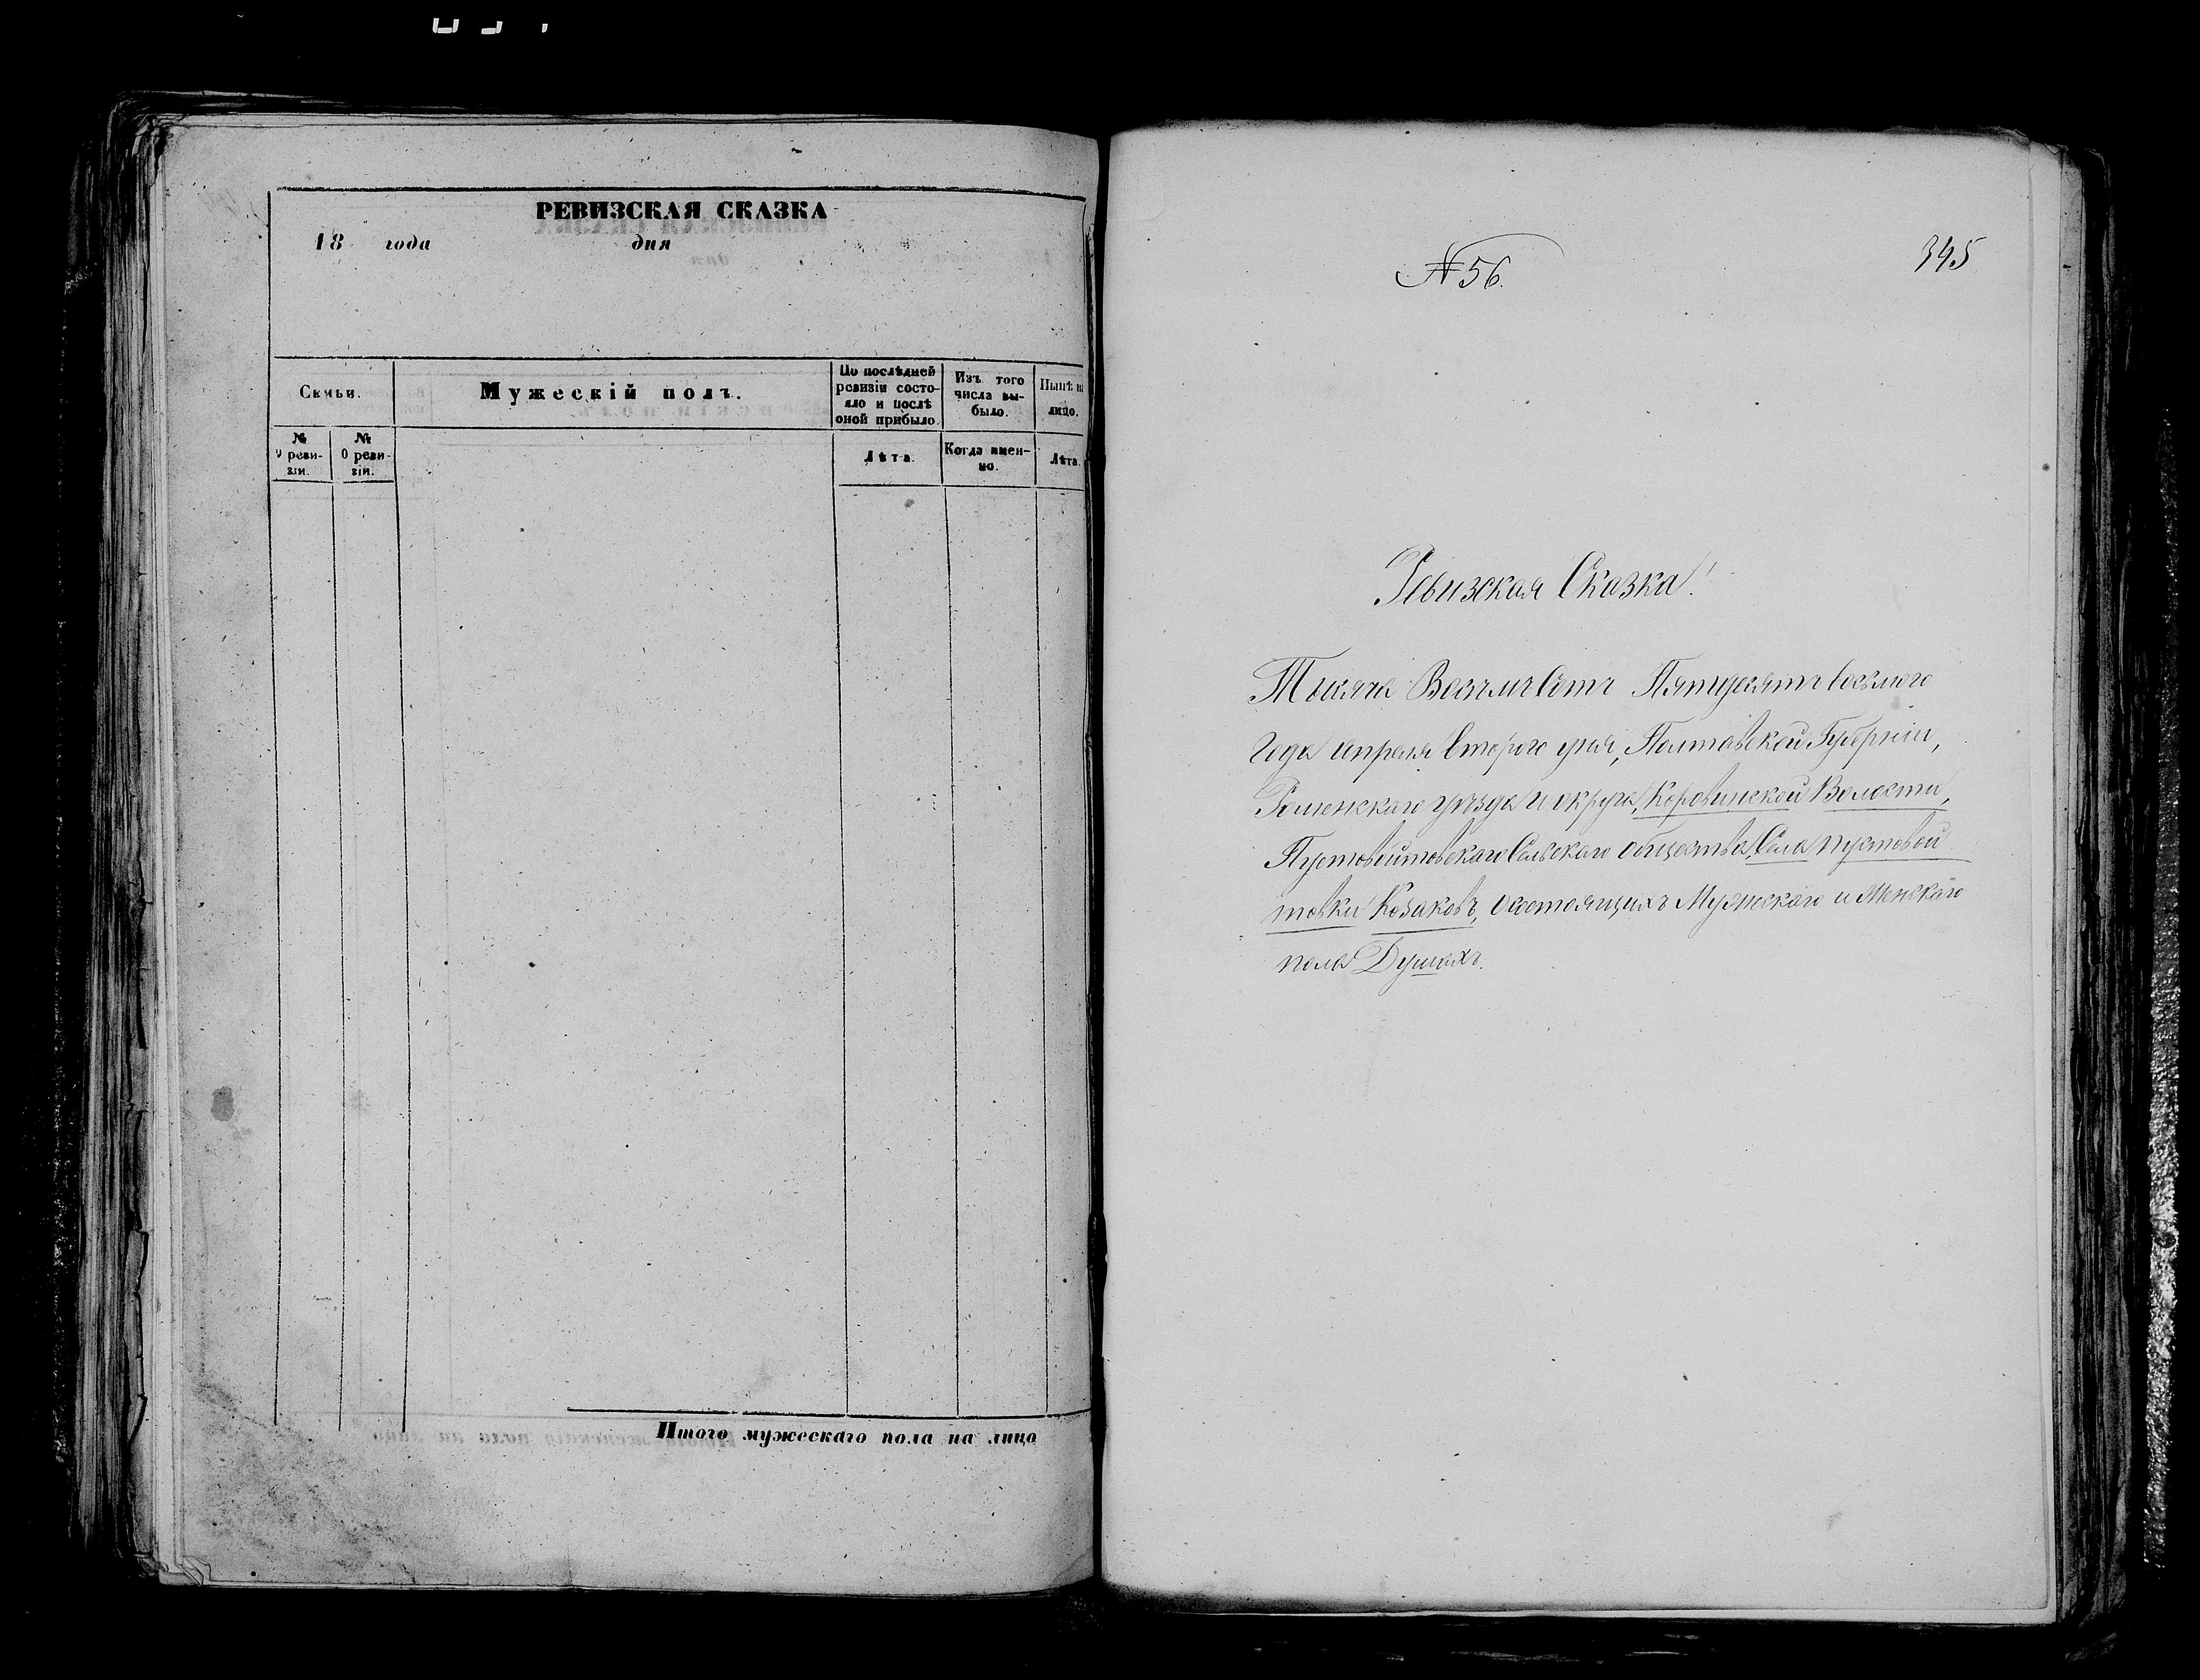 РЕВИЗСКАЯ СКАЗКА
18 года дня
Семьи.
Мужескій полъ.
По послѣдней
ревизіи состо-
яло и послѣ
оной прибыло.
Изъ того
числа вы-
было.
Нынѣ на
лицо.
№
0 реви-
зіи.
№
0 реви-
зіи.
Лѣта.
Когда имен-
но.
Лѣта.
Итого мужескаго пола на лицо
№ 56.
345
Ревизская Сказка!
Тысяча Восемь Сотъ Пятидесятъ восьмого
Года апреля второго дня, Полтавской Губерніи,
Роменского уѣзда и округа, Коровинской Волости,
Пустовойтовскаго Сельскаго общества, Села Пустовой
товки Козаковъ, состоящихъ Мужескаго и Женскаго
пола Душахъ.